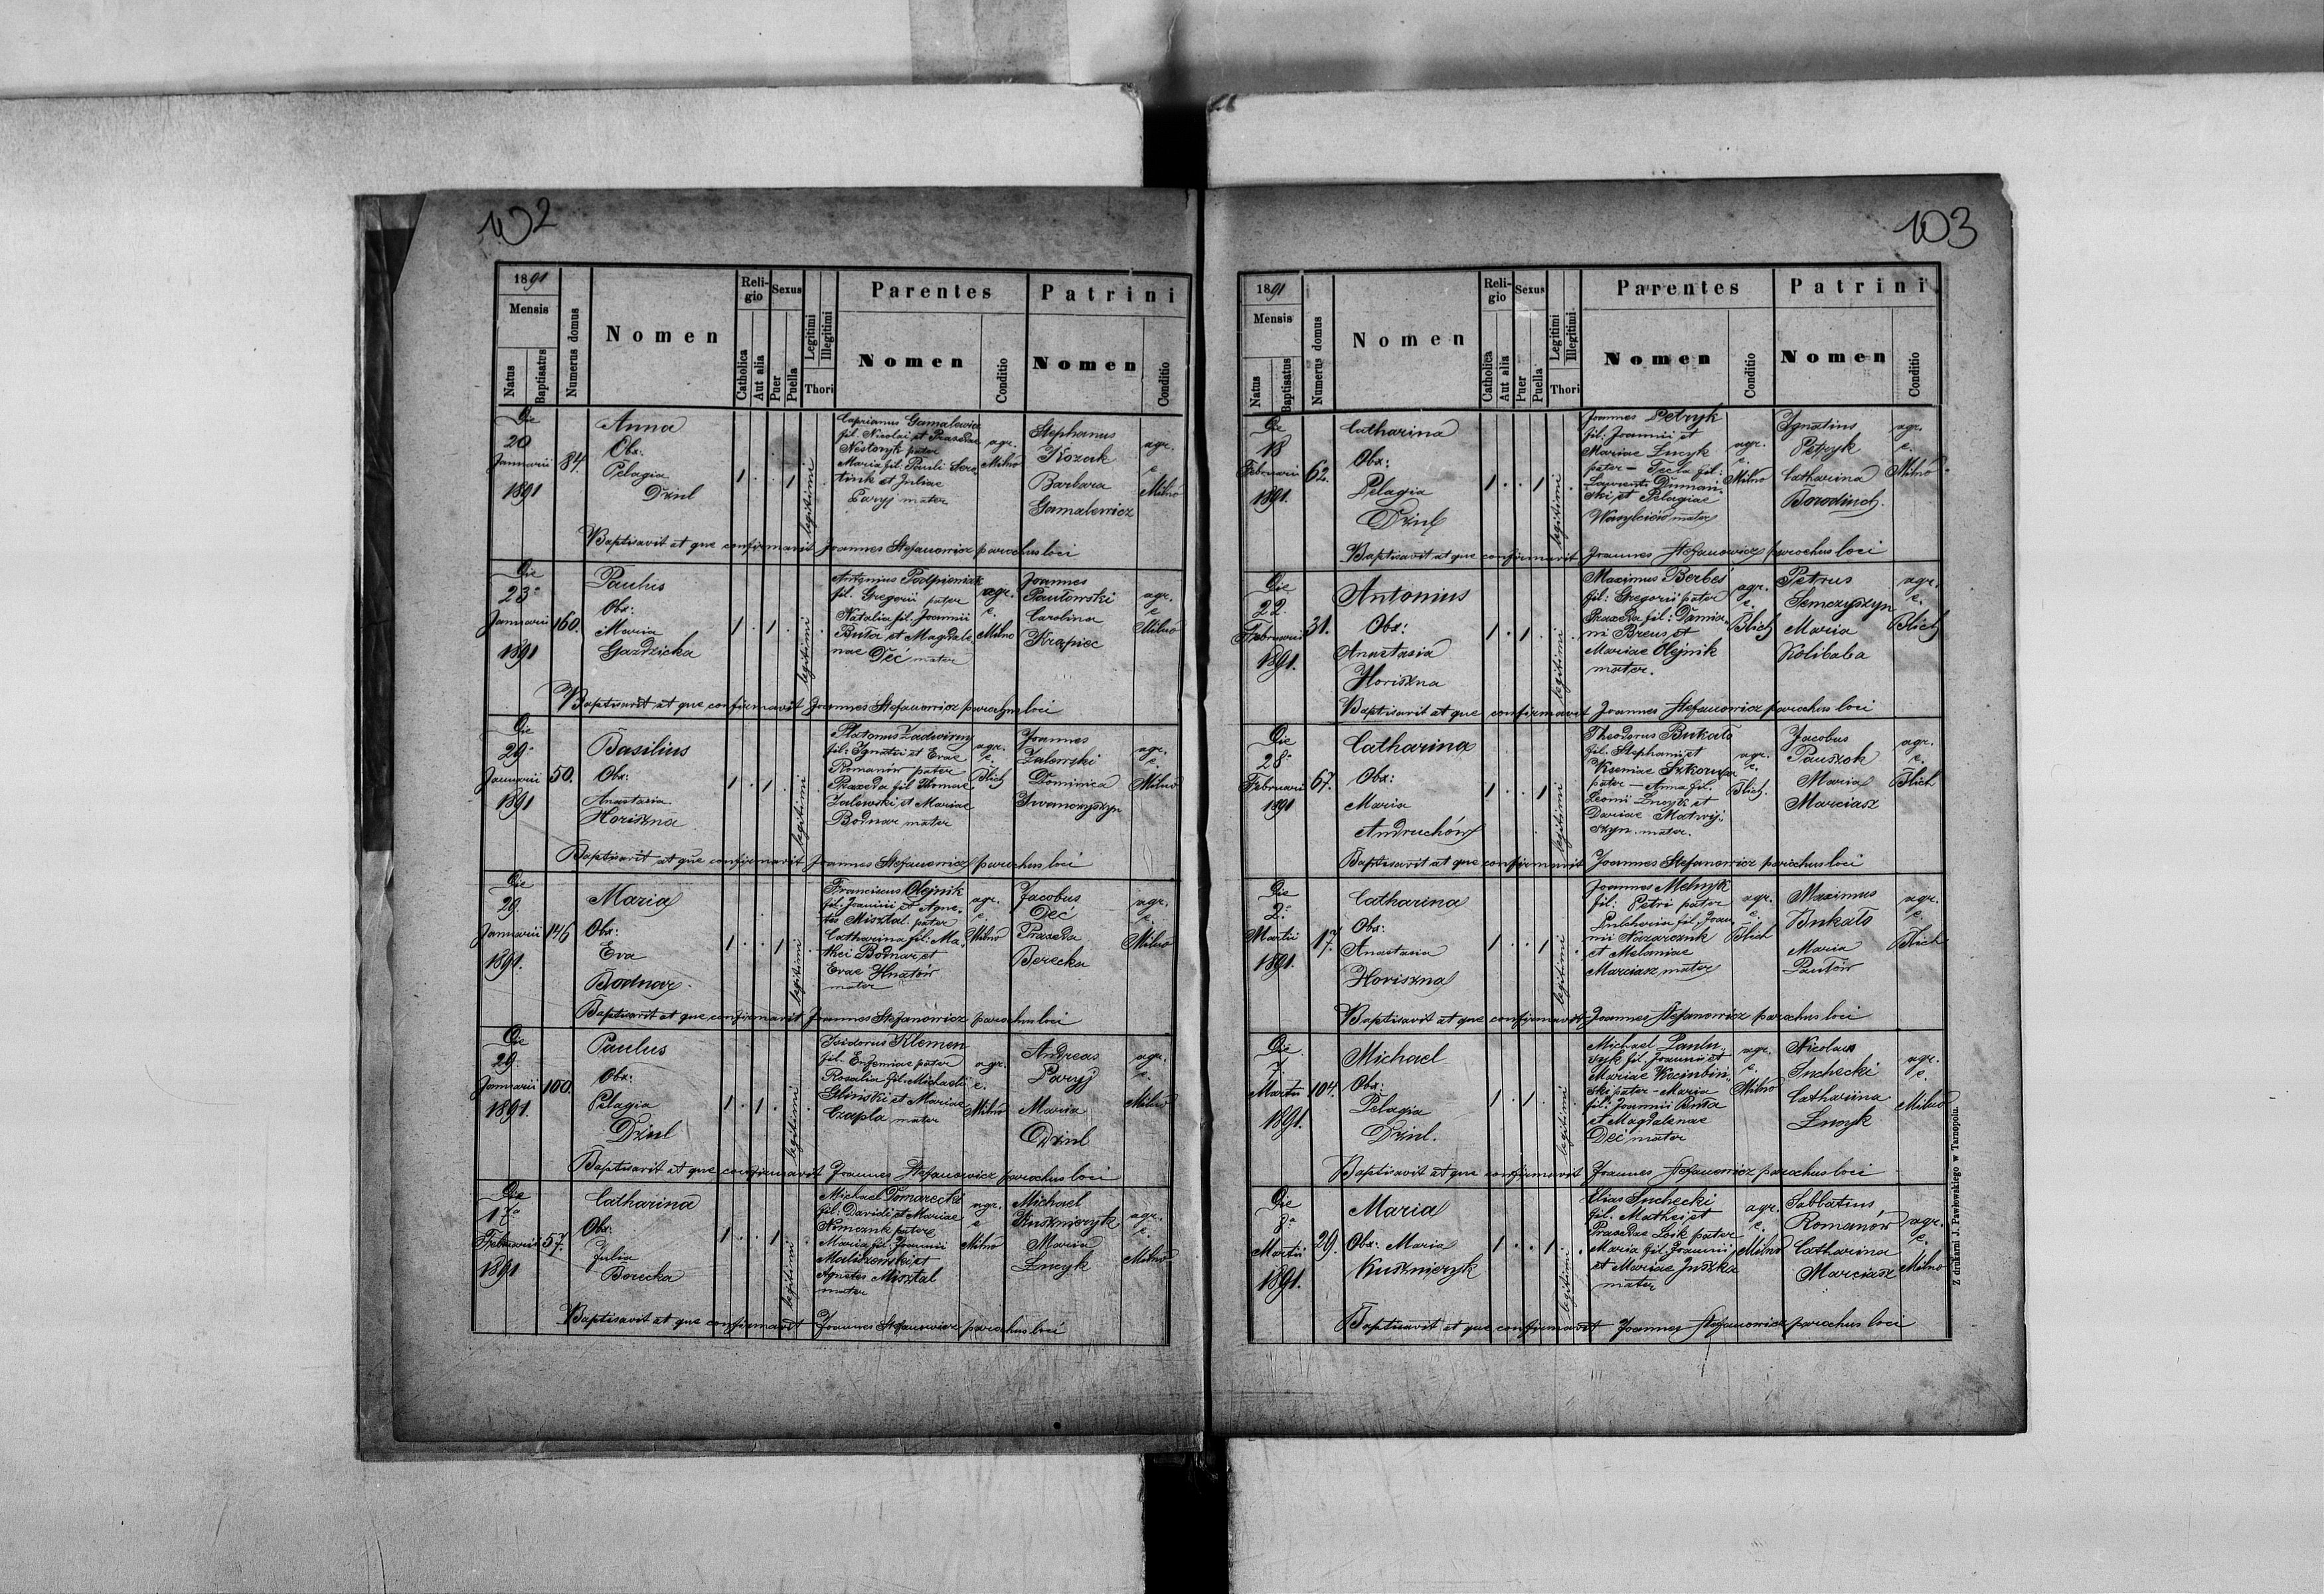 102
1891
Mensis
Natus
Baptisatus
Numerus domus
Nomen
Religio
Catholica
Aut alia
Sexus
Puer
Puella
Legitimi
Illegitimi
Thori
Parentes
Nomen
Conditio
Patrini
Nomen
Conditio
Die
20
Januarii
1891
84.
Anna
Obx:
Pelagia
Dziul
1 . . 1
legitimi
Caprianus Gamalewicz
fil. Nicolai et Praxedae
Nestoryk pater
Maria fil. Pauli Sere
tiuk et Juliae
Paryj mater
agr.
Milno
Stephanus
Kozak
Barbara
Gamalewicz
agr.
c
Milno
Baptisavit at que confirmavit Joannes Stefanowicz parochus loci
Die
23
Januarii
1891
160.
Paulus
Obx:
Maria
Gazdzicka
1 . 1 .
legitimi
Antonius Podpieniak
fil. Gregorii pater
Natalia fil. Joannii
Buła et Magdale
nae Deć mater
agr.
c.
Milno
Joannes
Pawłowski
Carolina
Krapiec
agr.
c
Milno
Baptisavit at que confirmavit Joannes Stefanowicz parochus loci
Die
29
Januarii
1891
50.
Basilius
Obx:
Anastasia
Horiszna
1 . 1 .
legitimi
Platonus Zadworny
fil. Ignatii et Evae
Romanów pater
Praxeda fil. Thomae
Zalewski et Mariae
Bodnar mater
agr.
c.
Blich
Joannes
Zalewski
Dominica
Iwanczyszyn
agr.
c.
Milno
Baptisavit at que confirmavit Joannes Stefanowicz parochus loci
Die
29.
Januarii
1891.
146
Maria
Obx:
Eva
Bodnar
1 . . 1
legitimi
Franciscus Olejnik
fil. Joannii et Agne-
tes Misztal pater
Catharina fil: Ma-
thei Bodnar et
Evae Hnatów
mater
agr.
c.
Milno
Jacobus
Deć
Praxeda
Berecka
agr.
c.
Milno
Baptisavit at que confirmavit Joannes Stefanowicz parochus loci
Die
29
Januarii
1891.
100.
Paulus
Obx:
Pelagia
Dziul
1 . 1 .
legitimi
Isidorus Klemen
fil. Eufemiae pater
Rosalia fil. Michaelis
Gliński et Mariae
Czapla mater
agr.
c.
Milno
Andreas
Paryj
Maria
Dziul
agr.
c.
Milno
Baptisavit at que confirmavit Joannes Stefanowicz parochus loci
Die
17
Februarii
1891
57.
Catharina
Obx:
Julia
Berecka
1 . . 1
legitimi
Michael Domarecki
fil: Davidi et Mariae
Nemczuk pater
Maria fil. Joannii
Maliszewski et
Agnetes Misztal
mater
agr.
c
Milno
Michael
Kuszniryk
Maria
Łucyk
agr.
c.
Milno
Baptisavit at que confirmavit Joannes Stefanowicz parochus loci
103
1891
Mensis
Natus
Baptisatus
Numerus domus
Nomen
Religio
Catholica
Aut alia
Sexus
Puer
Puella
Legitimi
Illegitimi
Thori
Parentes
Nomen
Conditio
Patrini
Nomen
Conditio
Die
18
Februarii
1891.
62.
Catharina
Obx:
Pelagia
Dziul
1 . . 1
legitimi
Joannes Petryk
fil: Joannii et
Mariae Łucyk
pater - Tecla fil:
Laurenti Dumań-
ski et Pelagiae
Wasylciów mater
agr.
c.
Milno
Ignatius
Petryk
Catharina
Borodinch
agr.
c.
Milno
Baptisavit at que confirmavit Joannes Stefanowicz parochus loci
Die
22.
Februarii
1891.
31.
Antonius
Obx:
Anastasia
Horiszna
1 . 1 .
legitimi
Maximus Berbeć
fil: Gregorii pater
Praxeda fil: Damia-
ni Breus et
Mariae Olejnik
mater.
agr.
c.
Blich
Petrus
Semczyszyn
Maria
Kolibaba
agr.
c.
Blich
Baptisavit at que confirmavit Joannes Stefanowicz parochus loci
Die
28
Februarii
1891
67.
Catharina
Obx:
Maria
Andruchów
1 . . 1
legitimi
Theodorus Bukało
fil. Stephani et
Kseniae
pater - Anna fil.
Leonii Łucyk et
Dariae Matwij-
szyn mater.
agr.
c.
Blich.
Jacobus
Pauszok
Maria
Marciasz
agr.
c.
Blich
Baptisavit at que confirmavit Joannes Stefanowicz parochus loci
Die
2.
Martii
1891.
17.
Catharina
Obx:
Anastasia
Horiszna
1 . . 1
legitimi
Joannes Melnyk
fil: Petri pater
Pulcheria fil. Joan
nii Nazarczuk
et Melaniae
Marciasz mater
agr.
c.
Blich
Maximus
Bukało
Maria
Pawłów
agr.
c.
Blich
Baptisavit at que confirmavit Joannes Stefanowicz parochus loci
Die
7.
Martii
1891.
104.
Michael
Obx:
Pelagia
Dziul.
1 . 1 .
legitimi
Michael
fil. Joannii et
Mariae Kocinbiń-
ski pater - Maria
fil: Joannii Buła
et Magdalenae
Deć mater
agr.
c.
Milno
Nicolaus
Suchecki
Catharina
Łucyk
agr.
c.
Milno
Baptisavit at que confirmavit Joannes Stefanowicz parochus loci
Die
8.
Martii
1891.
29.
Maria
Obx: Maria
Kuszniryk
1 . . 1
legitimi
Elias Suchecki
fil. Mathei et
Praxedae Łoik pater
Maria fil. Joannii
et Mariae Juszka
mater
agr.
c.
Milno
Sabbatius
Romanów
Catharina
Marciasz
agr.
c.
Milno
Baptisavit at que confirmavit Joannes Stefanowicz parochus loci
Z drukarni J. Pawłowskiego w Tarnopolu.